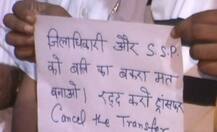 जिलाधिकारी और S.S.P.
को बलि का बकरा मत
बनाओ। रद्द करो ट्रांसफर
Cancel the Transfer